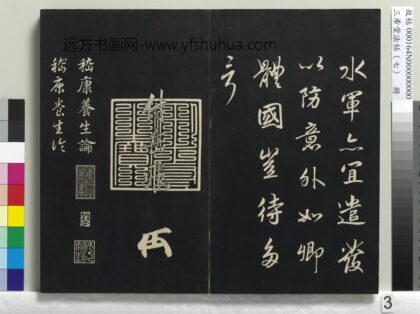 远方书画网-www.yfshuhua.com
水軍亦宜遣發
以防意外如卿
體國豈待多
言
付岳飛
嵇康養生論
嵇康養生論
故帖 000164N000000000
三希堂法帖（七） 冊
3